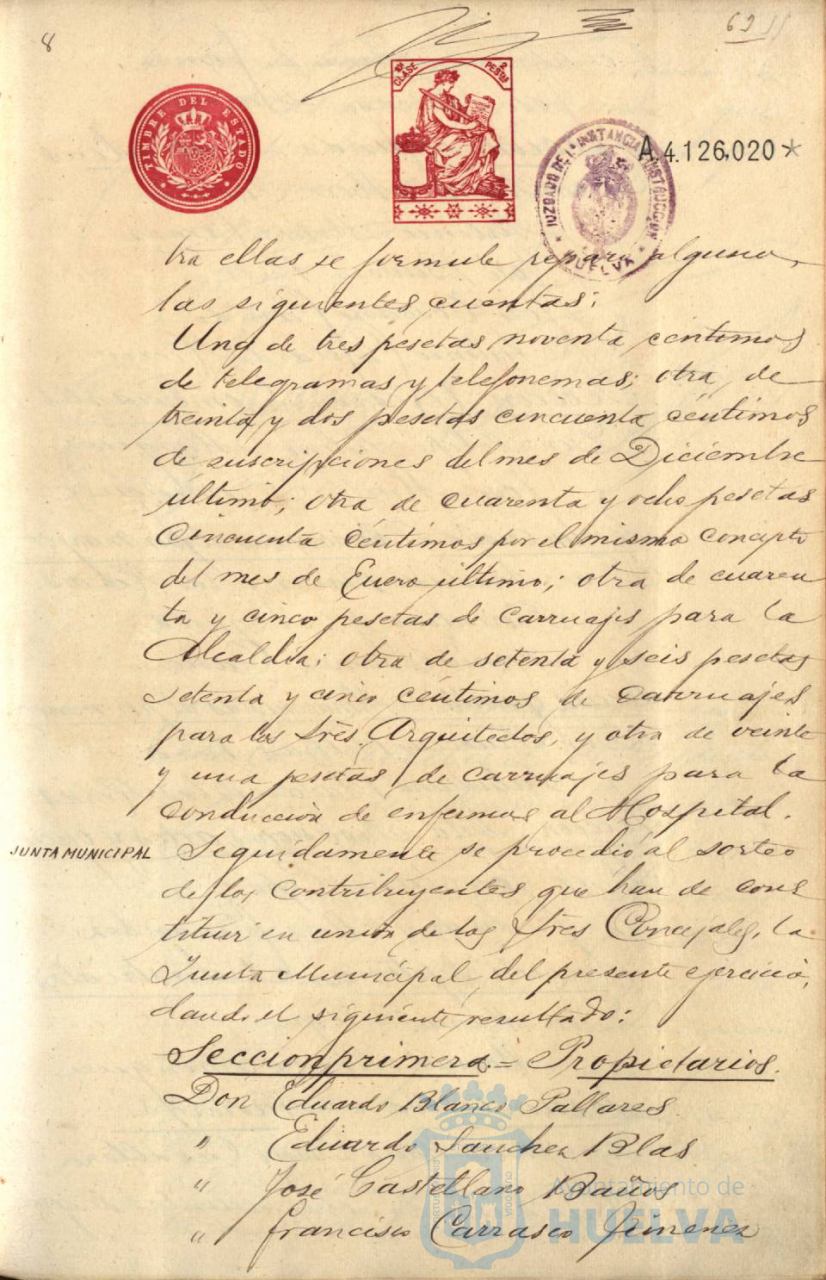 8
69
TIMBRE DEL ESTADO
10ª CLASE 2 PESTAS
JUZGADO DE 1ª INSTANCIA E INSTRUCCION
HUELVA
A.4.126,020*
tra ellas se formule reparo alguno,
las siguientes cuentas:
Una de tres pesetas noventa céntimos
de telegramas y telefonemas; otra, de
treinta y dos pesetas cincuenta céntimos
de suscripciones del mes de Diciembre
último; otra de cuarenta y ocho pesetas
cincuenta céntimos por el mismo concepto
del mes de Enero último; otra de cuaren
ta y cinco pesetas de carruajes para la
Alcaldía; otra de setenta y seis pesetas
setenta y cinco céntimos de carruajes
para los Sres. Arquitectos, y otra de veinte
y una pesetas de carruajes para la
conducción de enfermos al Hospital.
JUNTA MUNICIPAL
Seguidamente se procedió al sorteo
de los contribuyentes que han de cons
tituir en unión de los Sres Concejales, la
Junta Municipal del presente ejercicio,
dando el siguiente resultado:
Seccion primera = Propietarios.
Don Eduardo Blanco Pallares
" Eduardo Sanchez Blas
" José Castellano Baños
" Francisco Carrasco Jimenez
Ayuntamiento de
HUELVA